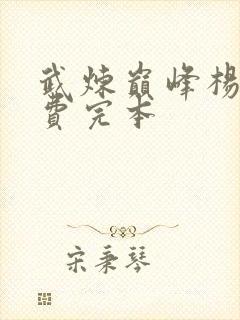 武炼巅峰楊
費完本
宋秉琴